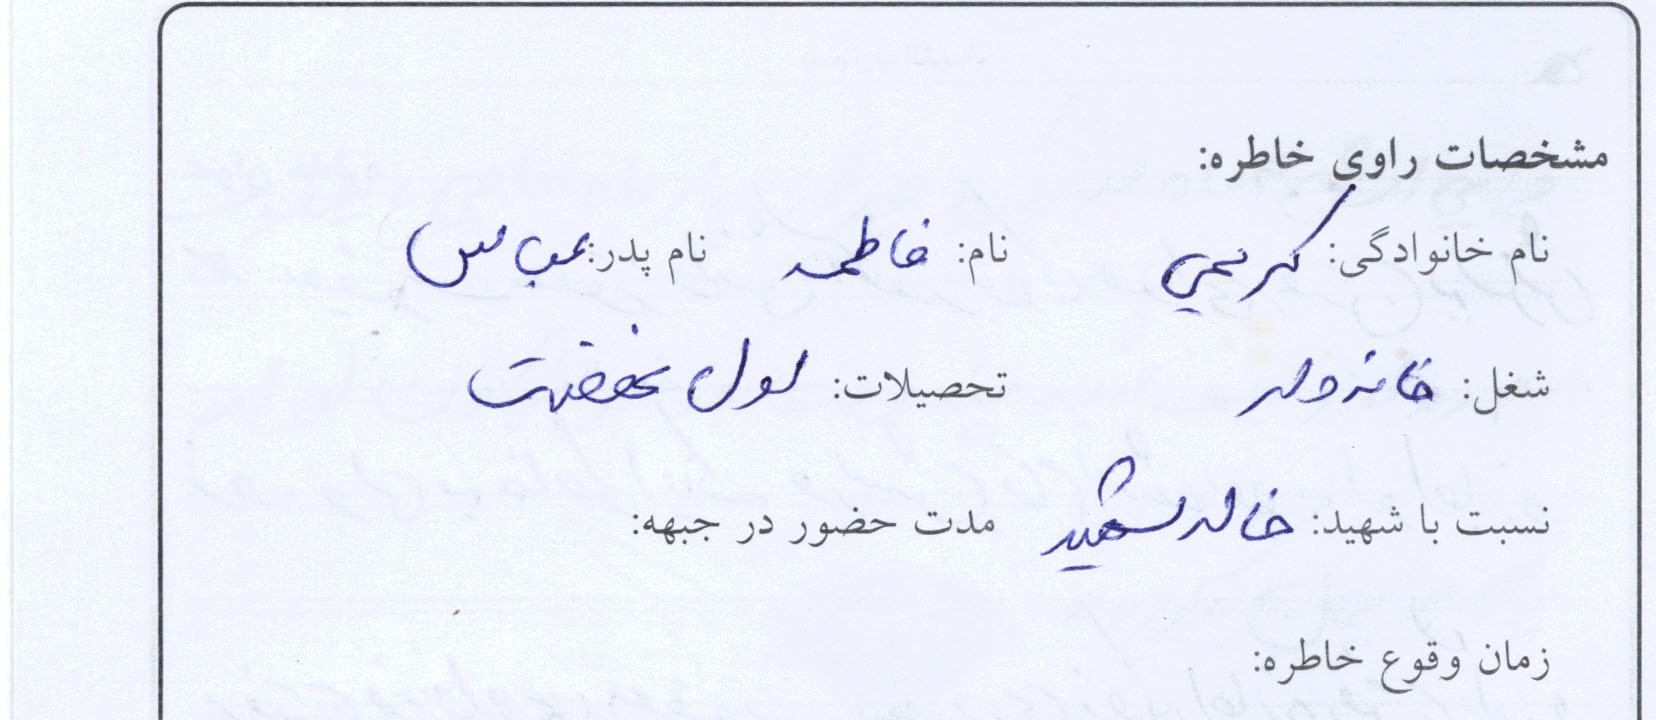 مشخصات راوی خاطره:
نام خانوادگی: کریمی نام: فاطمه نام پدر: عباس
شغل: خانه دار تحصیلات: اول نهضت
نسبت با شهید: خاله شهید مدت حضور در جبهه:
زمان وقوع خاطره: